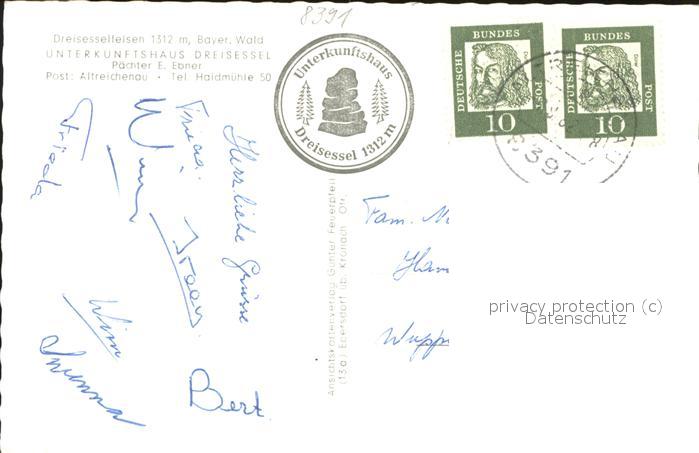 8391
Dreisesselfelsen 1312 m, Bayer. Wald
UNTERKUNFTSHAUS DREISESSEL
Pächter E. Ebner
Post: Altreichenau • Tel. Haidmühle 50
Unterkunftshaus
Dreisessel 1312 m
DEUTSCHE BUNDES POST
10
DEUTSCHE BUNDES POST
10
8391
Herzliche Grüsse
Frieda
Wim
Bert
Ansichtskartenverlag Günter Feuerpfeil
(13a) Ebersdorf üb. Kronach Ofr.
Fam. M
Ham
Wupp
privacy protection (c)
Datenschutz